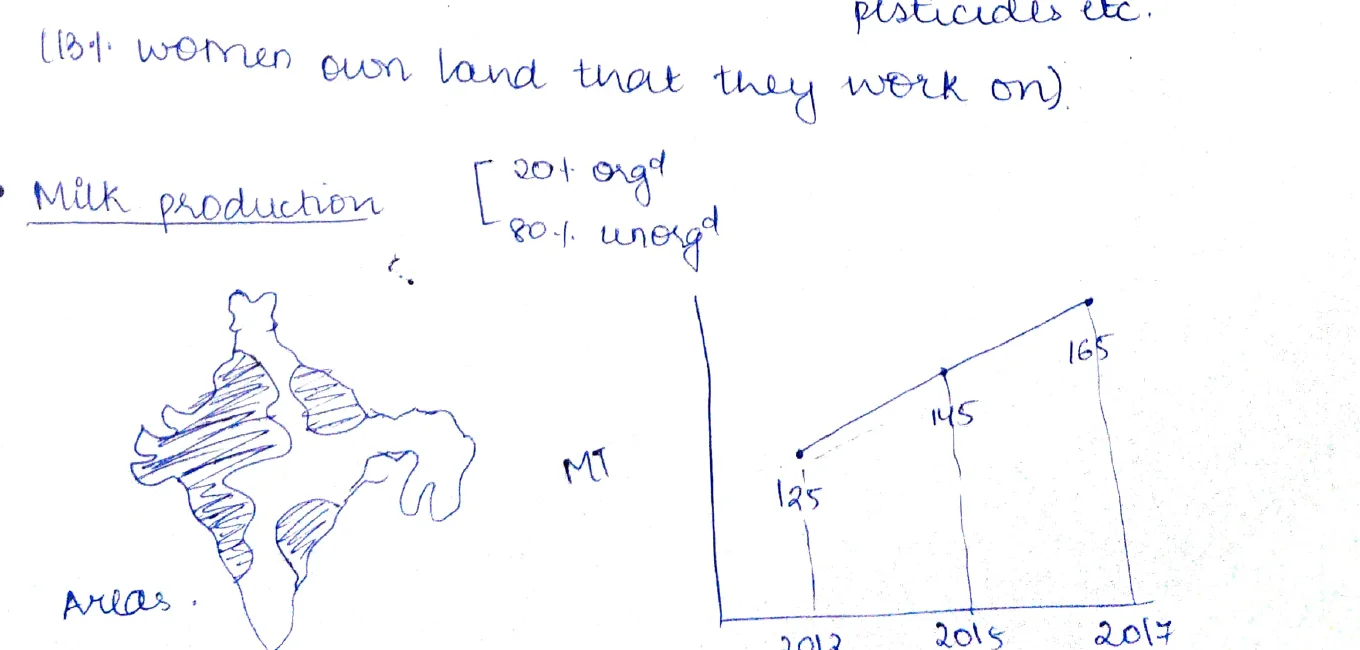 pesticides etc.
(13% women own land that they work on).
• Milk production
20% orgd
80% unorgd
165
145
MT
125
Areas.
2015
2017